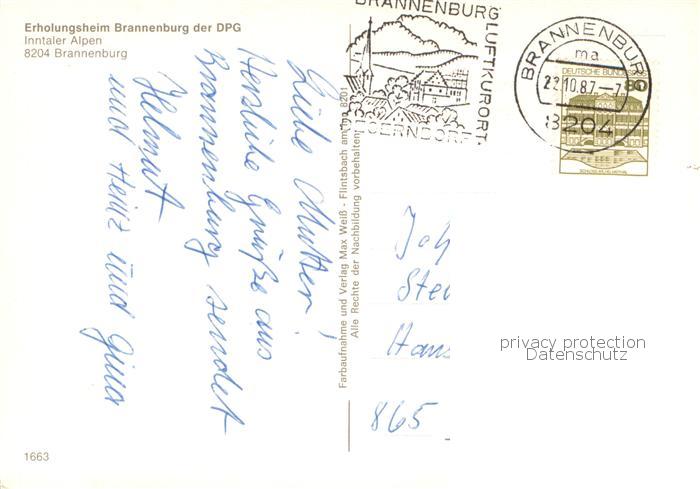 Erholungsheim Brannenburg der DPG
Inntaler Alpen
8204 Brannenburg
Liebe Mutter!
Herzliche Grüße aus
Brannenburg sendet
Helmut
und Heinz und Gina
1663
Farbaufnahme und Verlag Max Weiß - Flintsbach am Inn 8201
Alle Rechte der Nachbildung vorbehalten
BRANNENBURG
LUFTKURORT
DEGERNDORF
BRANNENBURG
ma
22.10.87.-7
8204
DEUTSCHE BUNDESPOST
80
SCHLOSS WILHELMSTHAL
Joh
Ste
Han
865
privacy protection
Datenschutz